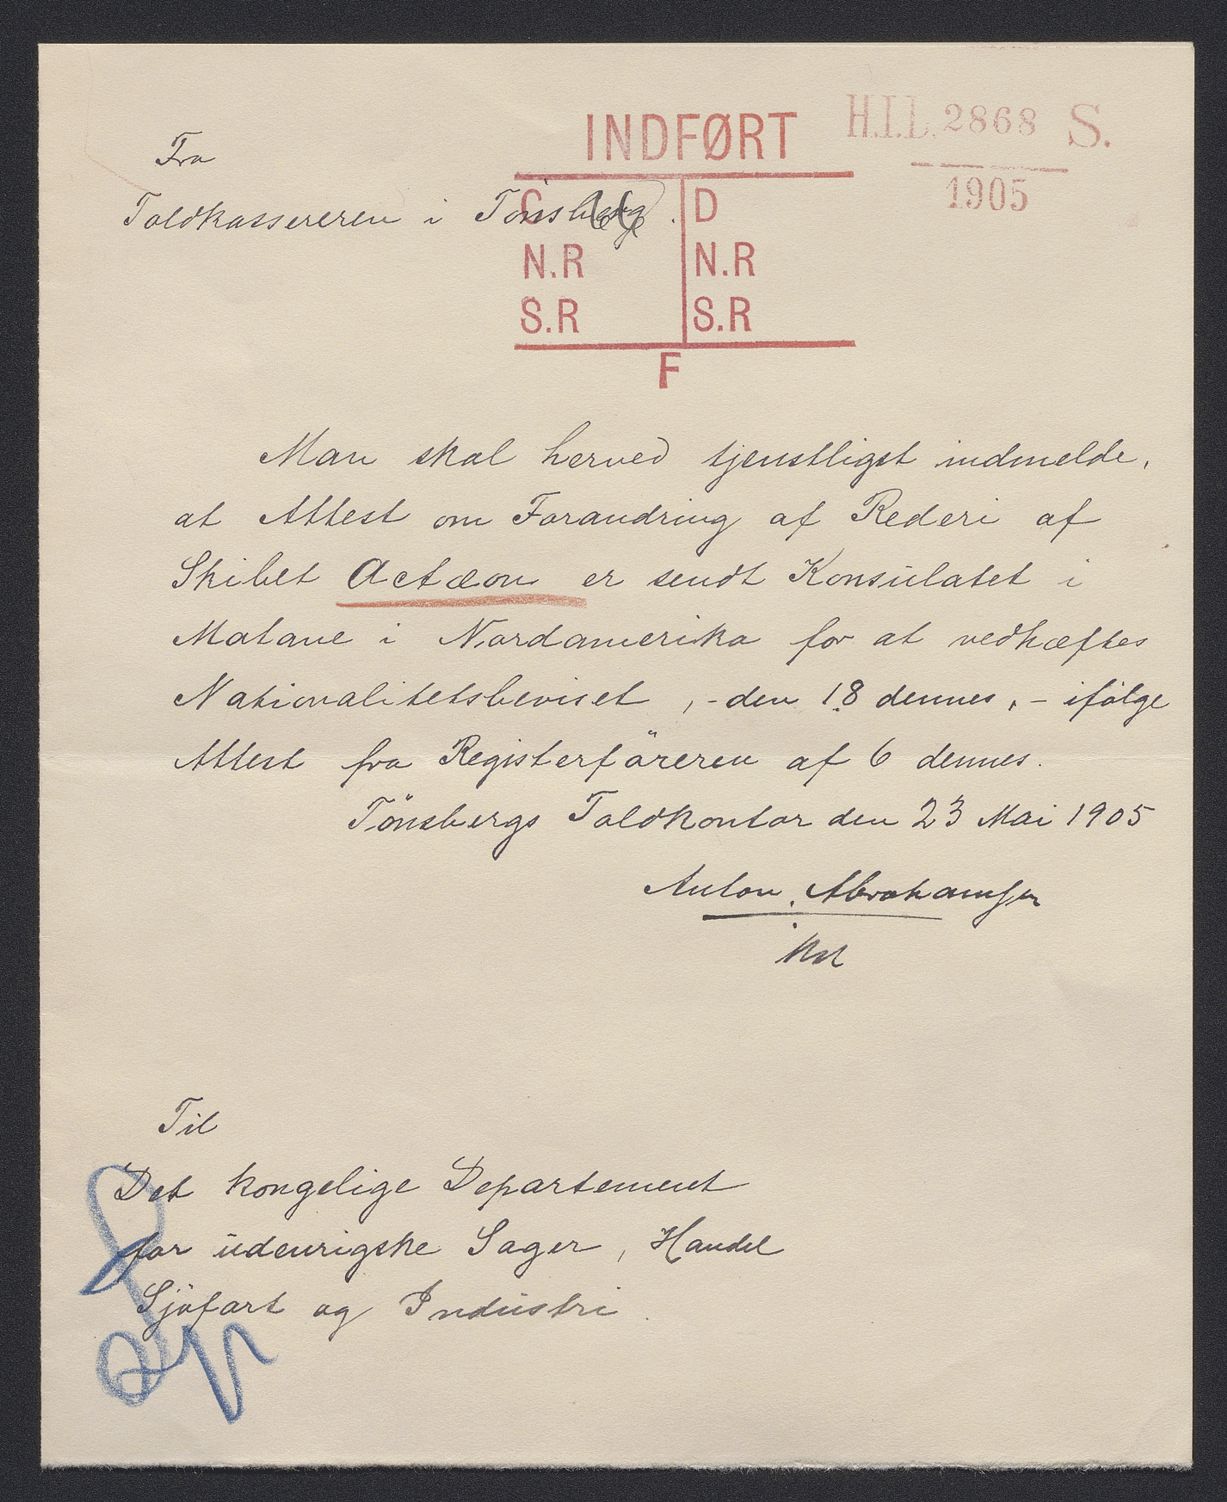 INDFØRT
H.I.L. 2868 S.
1905
Fra
Toldkassereren i Tønsberg.
C D
N.R N.R
S.R S.R
F
Man skal herved tjenstligst indmelde,
at Attest om Forandring af Rederi af
Skibet Actæon er sendt Konsulatet i
Matane i Nordamerika for at vedhæftes
Nationalitetsbeviset, - den 18 dennes, - ifølge
Attest fra Registerföreren af 6 dennes.
Tönsbergs Toldkontor den 23 Mai 1905
Anton Abrahamsen
Til
Det kongelige Departement
for udenrigske Sager, Handel
Sjöfart og Industri.